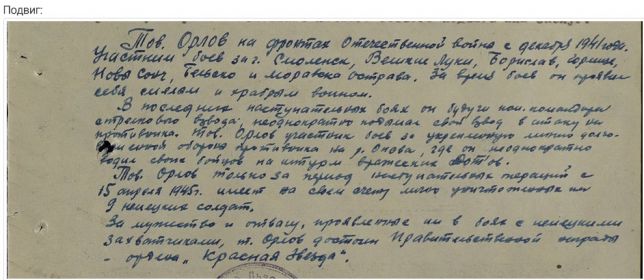 Подвиг:
Тов. Орлов на фронтах Отечественной войны с декабря 1941 года.
Участник боев за г. Смоленск, Великие Луки, Борислав, Горлице,
Новы Сонч, Бельско и Моравска Острава. За время боев он проявил
себя смелым и храбрым воином.
В последних наступательных боях он будучи пом. командира
стрелкового взвода, неоднократно поднимал свой взвод в атаку на
противника. Тов. Орлов участник боев за укрепленную линию долго-
временной обороны противника на р. Опова, где он неоднократно
водил своих бойцов на штурм вражеских дотов.
Тов. Орлов только за период наступательных операций с
15 апреля 1945г. имеет на своем счету лично уничтоженных им
9 немецких солдат.
За мужество и отвагу, проявленные им в боях с немецкими
захватчиками, т. Орлов достоин Правительственной награды
– ордена „Красная Звезда".